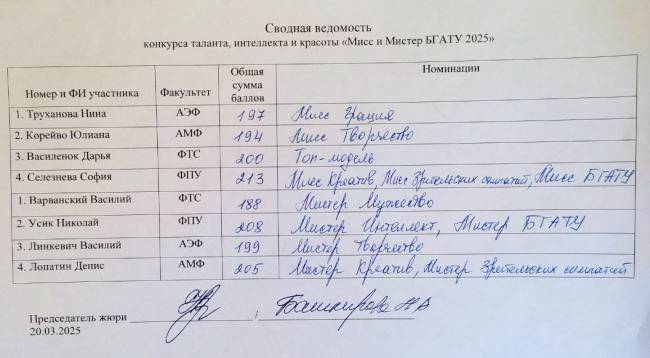 Сводная ведомость
конкурса таланта, интеллекта и красоты «Мисс и Мистер БГАТУ 2025»
Номер и ФИ участника Факультет Общая сумма баллов Номинации
1. Труханова Нина АЭФ 197 Мисс Грация
2. Корейво Юлиана АМФ 194 Мисс Творчество
3. Василенок Дарья ФТС 200 Топ-модель
4. Селезнева София ФПУ 213 Мисс Креатив, Мисс Зрительских симпатий, Мисс БГАТУ
1. Варванский Василий ФТС 188 Мистер Мужество
2. Усик Николай ФПУ 208 Мистер Интеллект, Мистер БГАТУ
3. Линкевич Василий АЭФ 199 Мистер Творчество
4. Лопатин Денис АМФ 205 Мистер Креатив, Мистер Зрительских симпатий
Председатель жюри Башкирова Н В
20.03.2025